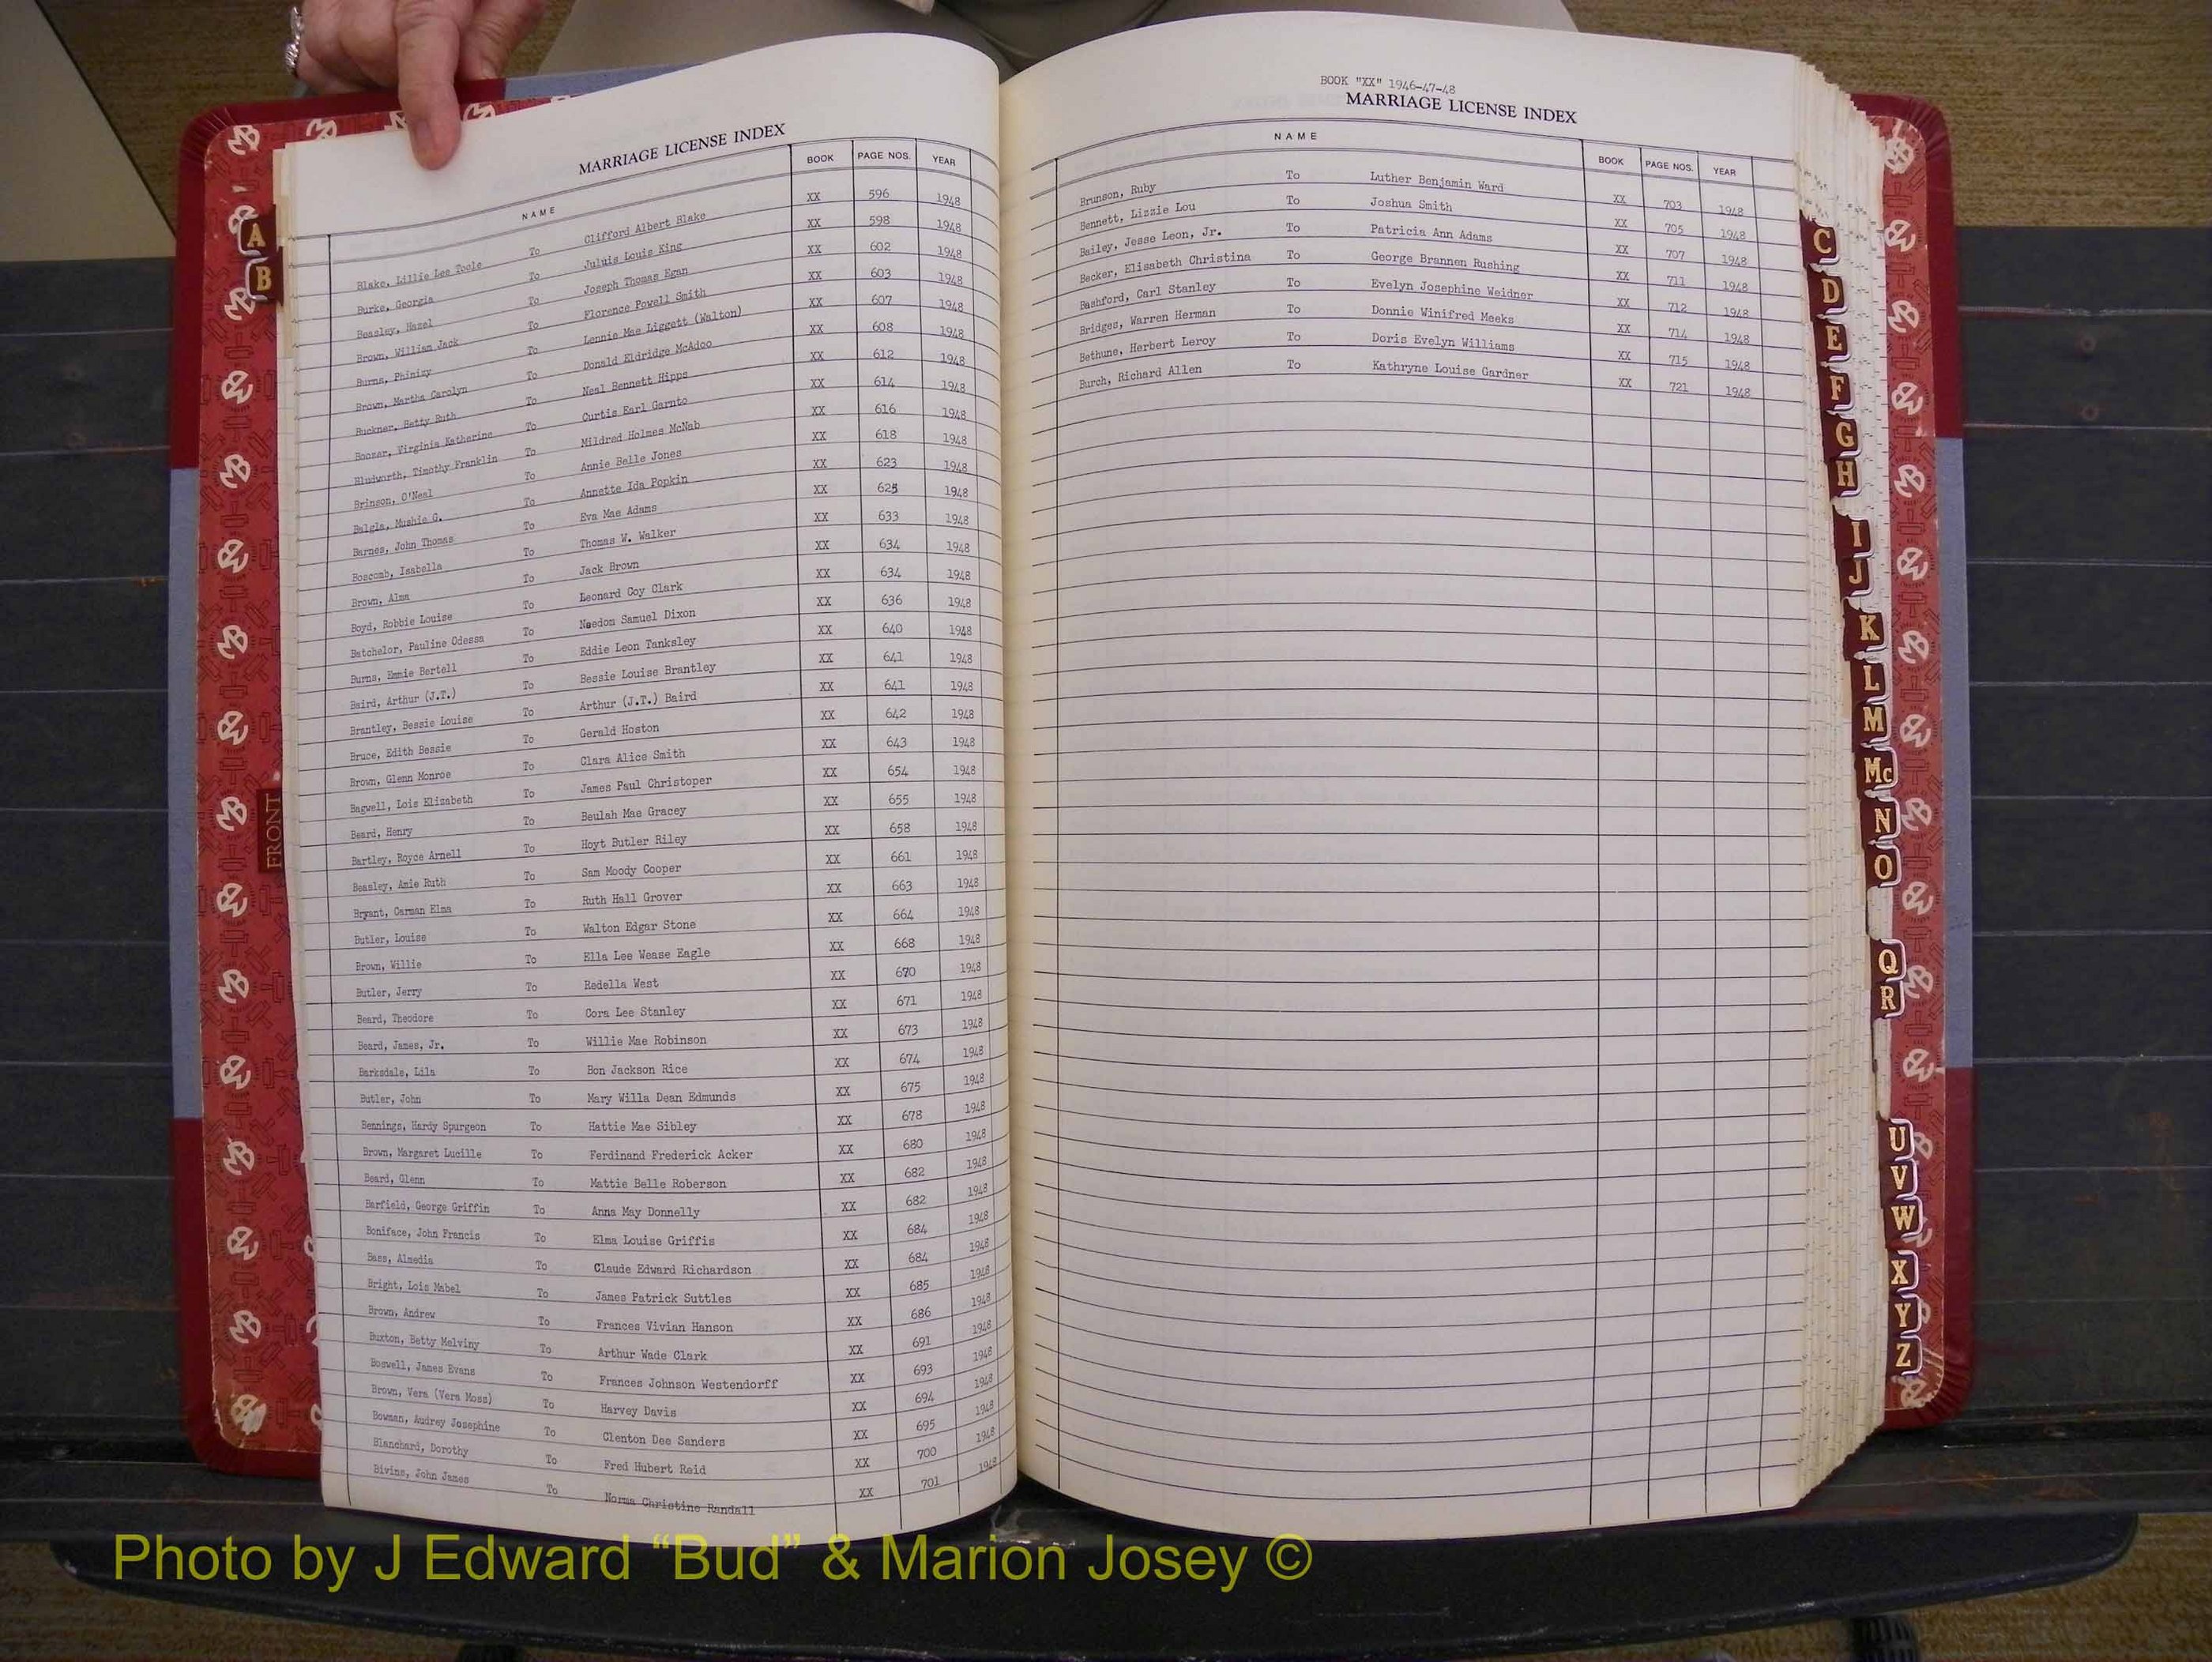 MARRIAGE LICENSE INDEX
NAME BOOK PAGE NOS. YEAR
Blake, Lillie Lee Toole To Clifford Albert Blake XX 596 1948
Burke, Georgia To Juluis Louis King XX 598 1948
Beasley, Hazel To Joseph Thomas Egan XX 602 1948
Brown, William Jack To Florence Powell Smith XX 603 1948
Burns, Phinizy To Lennie Mae Liggett (Walton) XX 607 1948
Brown, Martha Carolyn To Donald Eldridge McAdoo XX 608 1948
Buckner, Betty Ruth To Neal Bennett Hipps XX 612 1948
Boozer, Virginia Katherine To Curtis Earl Garnto XX 614 1948
Bludworth, Timothy Franklin To Mildred Holmes McNab XX 616 1948
Brinson, O'Neal To Annie Belle Jones XX 618 1948
Balgla, Mushie G. To Annette Ida Popkin XX 623 1948
Barnes, John Thomas To Eva Mae Adams XX 625 1948
Boscomb, Isabella To Thomas W. Walker XX 633 1948
Brown, Alma To Jack Brown XX 634 1948
Boyd, Robbie Louise To Leonard Coy Clark XX 634 1948
Batchelor, Pauline Odessa To Needom Samuel Dixon XX 636 1948
Burns, Emmie Bertell To Eddie Leon Tanksley XX 640 1948
Baird, Arthur (J.T.) To Bessie Louise Brantley XX 641 1948
Brantley, Bessie Louise To Arthur (J.T.) Baird XX 641 1948
Bruce, Edith Bessie To Gerald Hoston XX 642 1948
Brown, Glenn Monroe To Clara Alice Smith XX 643 1948
Bagwell, Lois Elizabeth To James Paul Christoper XX 654 1948
Beard, Henry To Beulah Mae Gracey XX 655 1948
Bartley, Royce Arnell To Hoyt Butler Riley XX 658 1948
Beasley, Amie Ruth To Sam Moody Cooper XX 661 1948
Bryant, Carman Elma To Ruth Hall Grover XX 663 1948
Butler, Louise To Walton Edgar Stone XX 664 1948
Brown, Willie To Ella Lee Wease Eagle XX 668 1948
Butler, Jerry To Redella West XX 670 1948
Beard, Theodore To Cora Lee Stanley XX 671 1948
Beard, James, Jr. To Willie Mae Robinson XX 673 1948
Barksdale, Lila To Bon Jackson Rice XX 674 1948
Butler, John To Mary Willa Dean Edmunds XX 675 1948
Bennings, Hardy Spurgeon To Hattie Mae Sibley XX 678 1948
Brown, Margaret Lucille To Ferdinand Frederick Acker XX 680 1948
Beard, Glenn To Mattie Belle Roberson XX 682 1948
Barfield, George Griffin To Anna May Donnelly XX 682 1948
Boniface, John Francis To Elma Louise Griffis XX 684 1948
Bass, Almedia To Claude Edward Richardson XX 684 1948
Bright, Lois Mabel To James Patrick Suttles XX 685 1948
Brown, Andrew To Frances Vivian Hanson XX 686 1948
Buxton, Betty Melviny To Arthur Wade Clark XX 691 1948
Boswell, James Evans To Frances Johnson Westendorff XX 693 1948
Brown, Vera (Vera Moss) To Harvey Davis XX 694 1948
Bowman, Audrey Josephine To Clenton Dee Sanders XX 695 1948
Blanchard, Dorothy To Fred Hubert Reid XX 700 1948
Bivins, John James To Norma Christine Randall XX 701 1948
BOOK "XX" 1946-47-48
MARRIAGE LICENSE INDEX
NAME BOOK PAGE NOS. YEAR
Brunson, Ruby To Luther Benjamin Ward XX 703 1948
Bennett, Lizzie Lou To Joshua Smith XX 705 1948
Bailey, Jesse Leon, Jr. To Patricia Ann Adams XX 707 1948
Becker, Elisabeth Christina To George Brannen Rushing XX 711 1948
Bashford, Carl Stanley To Evelyn Josephine Weidner XX 712 1948
Bridges, Warren Herman To Donnie Winifred Meeks XX 714 1948
Bethune, Herbert Leroy To Doris Evelyn Williams XX 715 1948
Burch, Richard Allen To Kathryne Louise Gardner XX 721 1948
A
B
FRONT
C
D
E
F
G
H
I
J
K
L
M
Mc
N
O
Q
R
U
V
W
X
Y
Z
Photo by J Edward “Bud” & Marion Josey ©